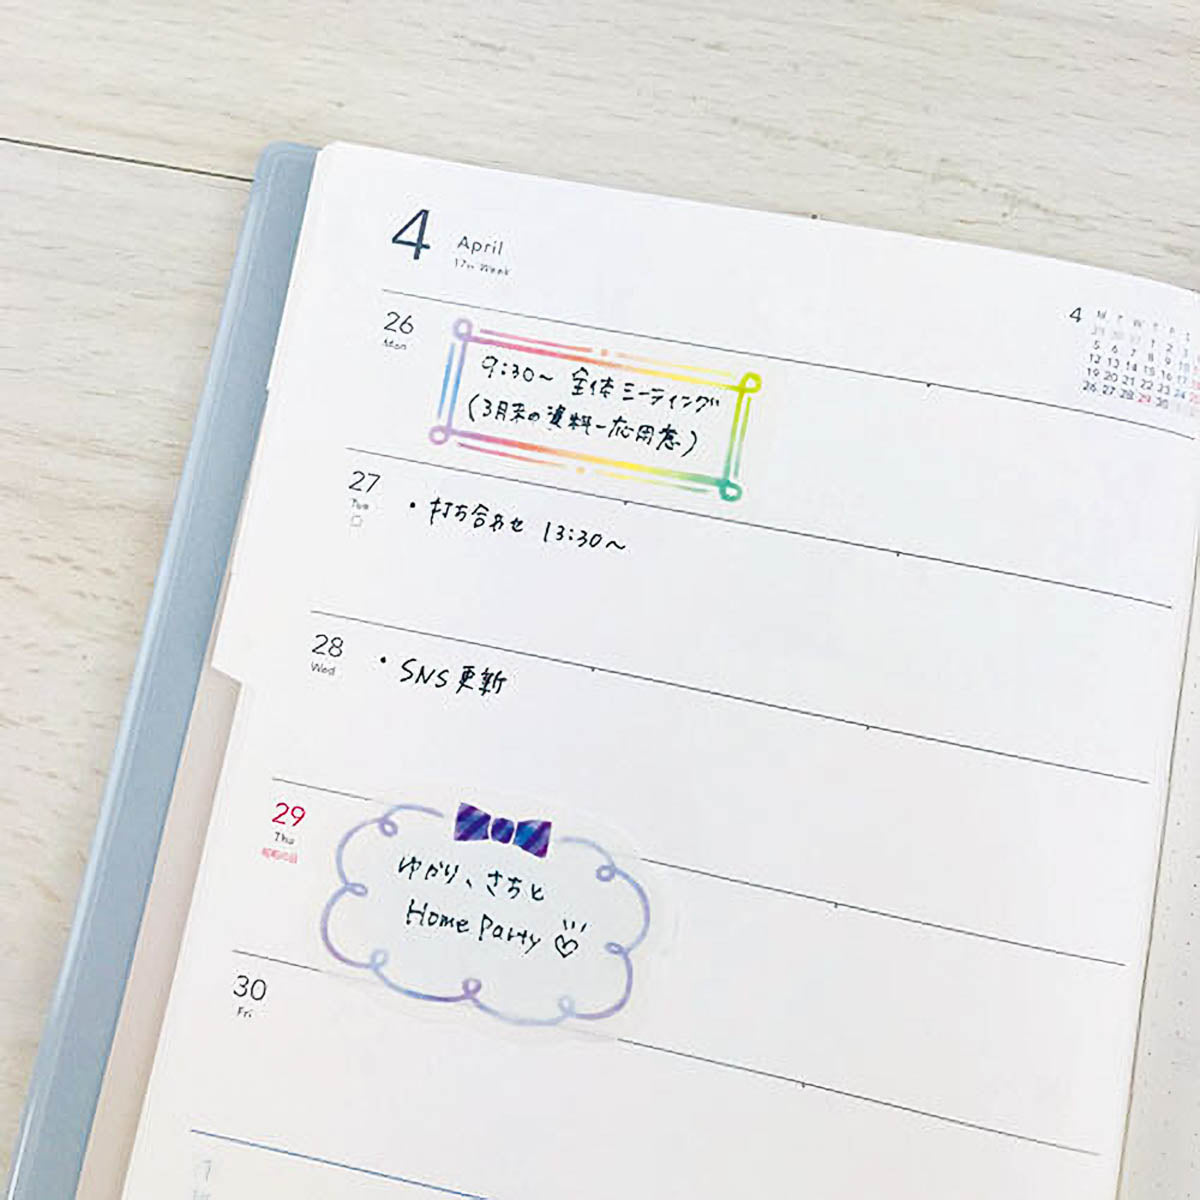 4 April
17th Week
4
M T W T F S
29 30 31 1 2 3
5 6 7 8 9 10
12 13 14 15 16 17
19 20 21 22 23 24
26 27 28 29 30
26
Mon
9:30〜 全体ミーティング
(3月末の資料一応用意)
27
Tue
・打ち合わせ 13:30〜
28
Wed
・SNS更新
29
Thu
昭和の日
ゆかり、さちと
Home Party ♡
30
Fri